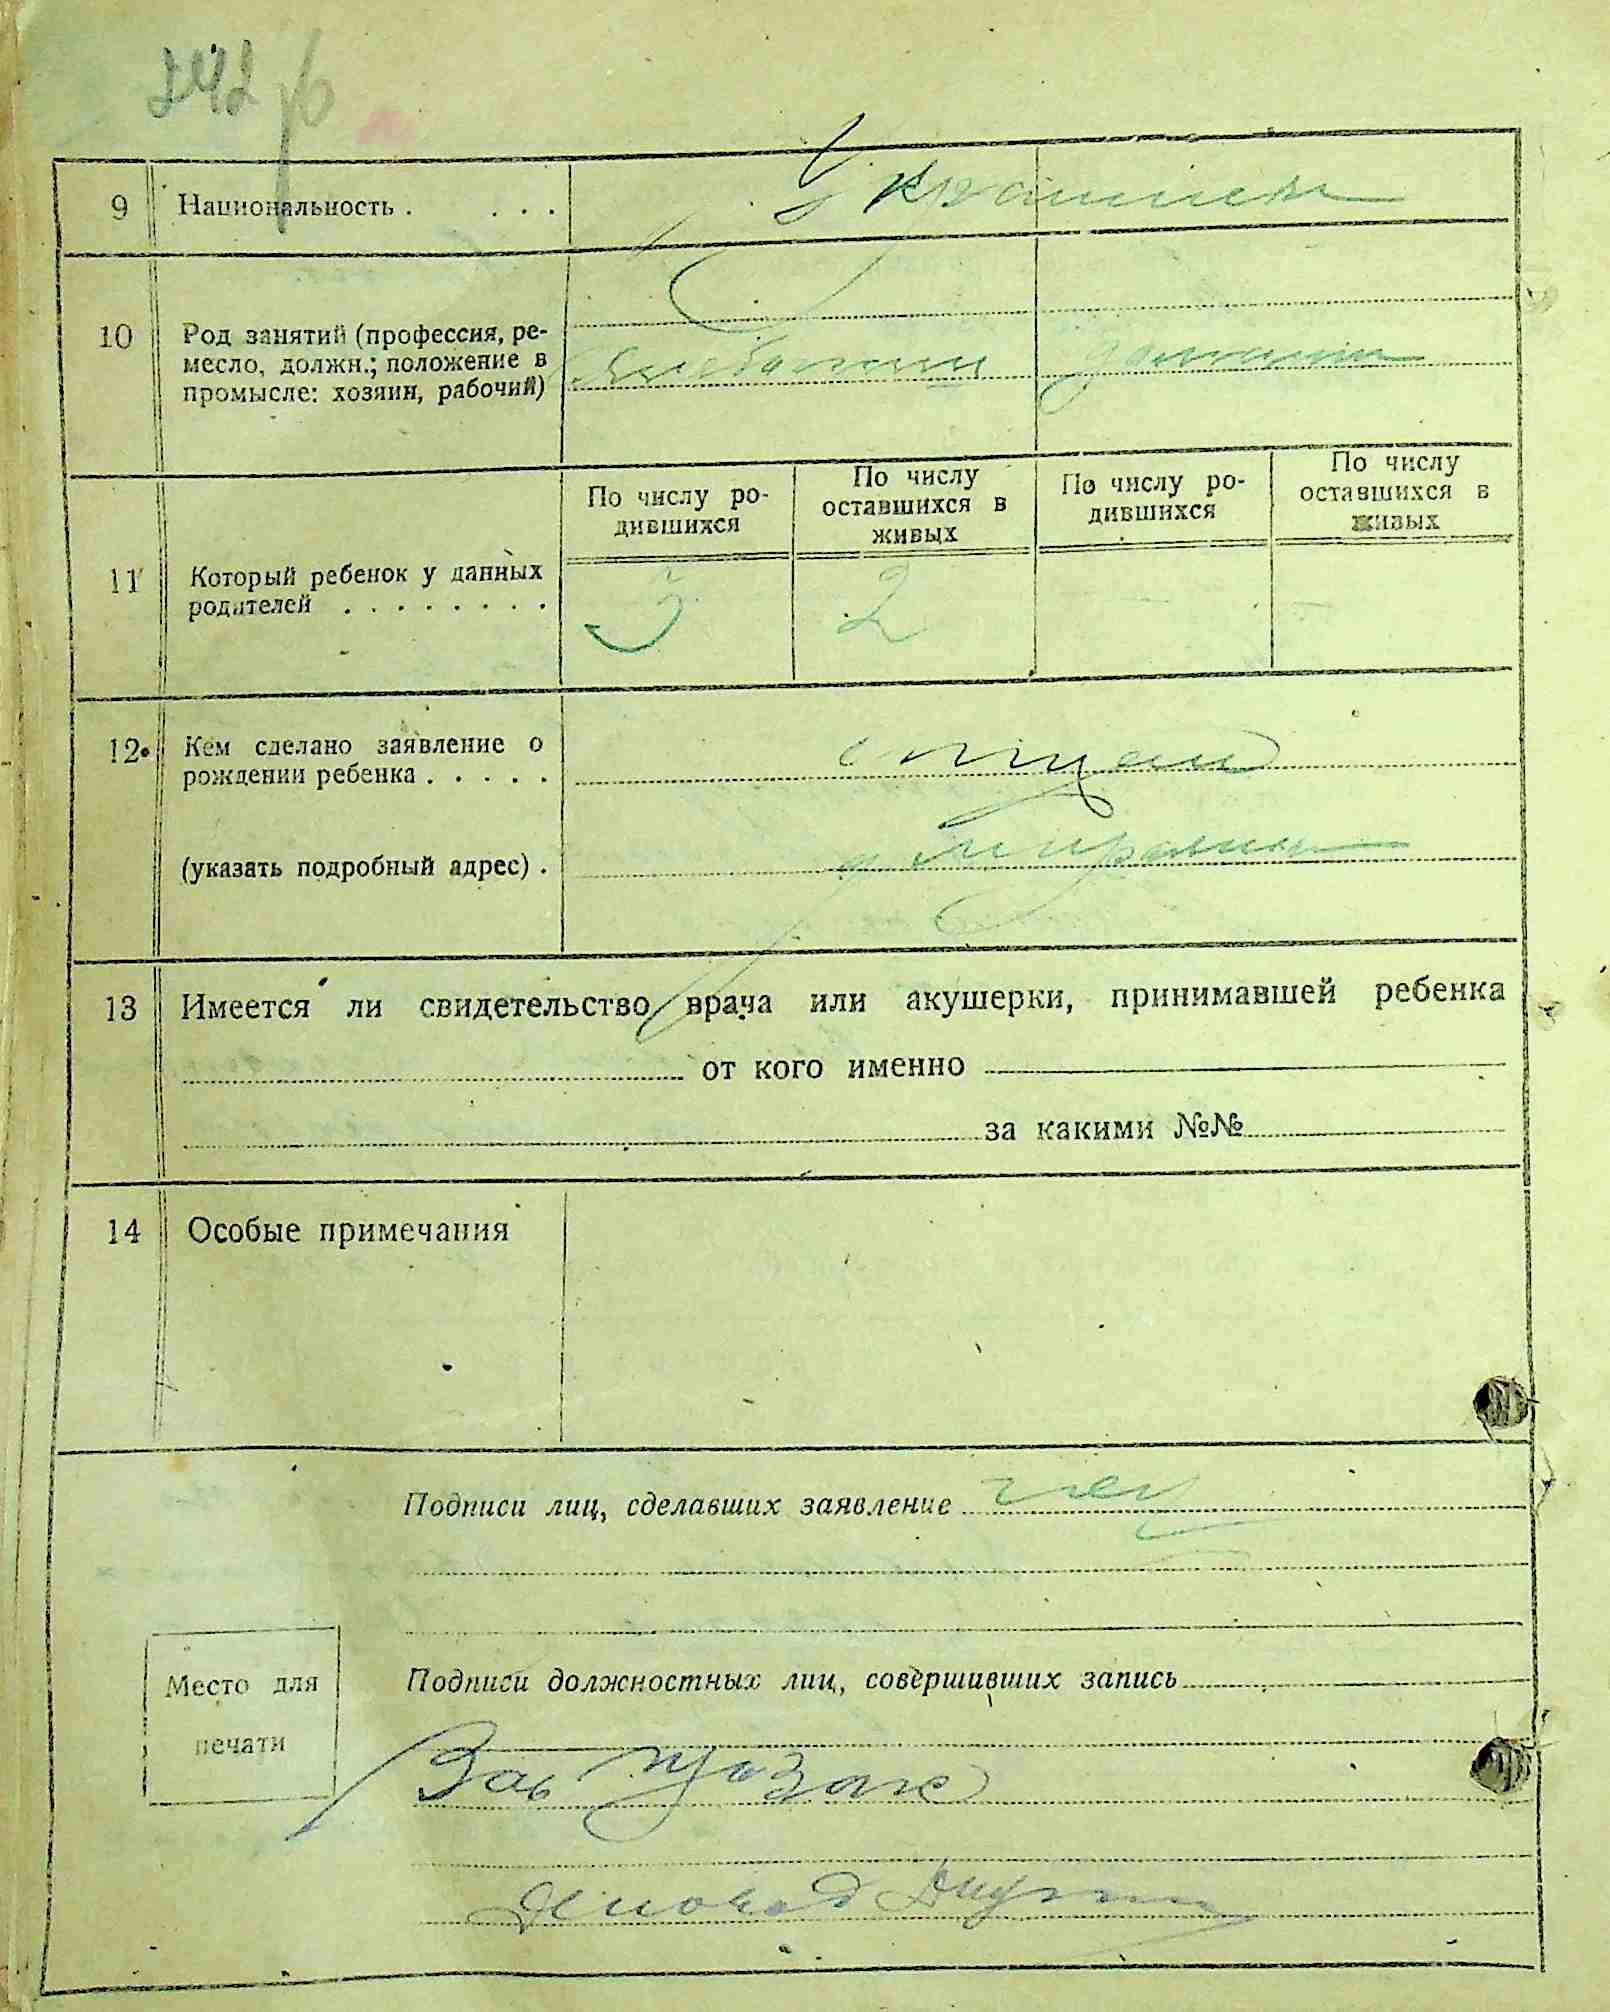 242
9 Национальность . . . .
10 Род занятий (профессия, ре-
месло, должн.; положение в
промысле: хозяин, рабочий)
11 Который ребенок у данных
родителей . . . . . . . .
По числу ро-
дившихся
По числу
оставшихся в
живых
По числу ро-
дившихся
По числу
оставшихся в
живых
3 2
12. Кем сделано заявление о
рождении ребенка . . . . .
отцем
(указать подробный адрес) .
13 Имеется ли свидетельство врача или акушерки, принимавшей ребенка
от кого именно
за какими №№
14 Особые примечания
Подписи лиц, сделавших заявление
Место для
печати
Подписи должностных лиц, совершивших запись
Зав
Деловод